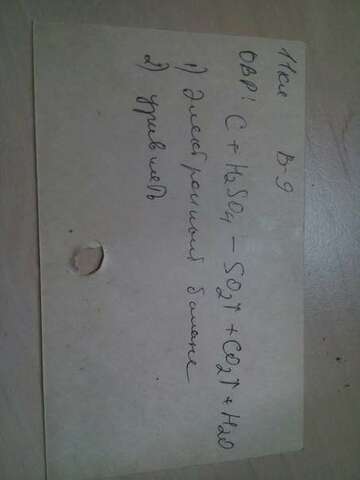 11кл В-9
ОВР: C + H₂SO₄ – SO₂↑ + CO₂↑ + H₂O
1) Электронный баланс
2) уравнять